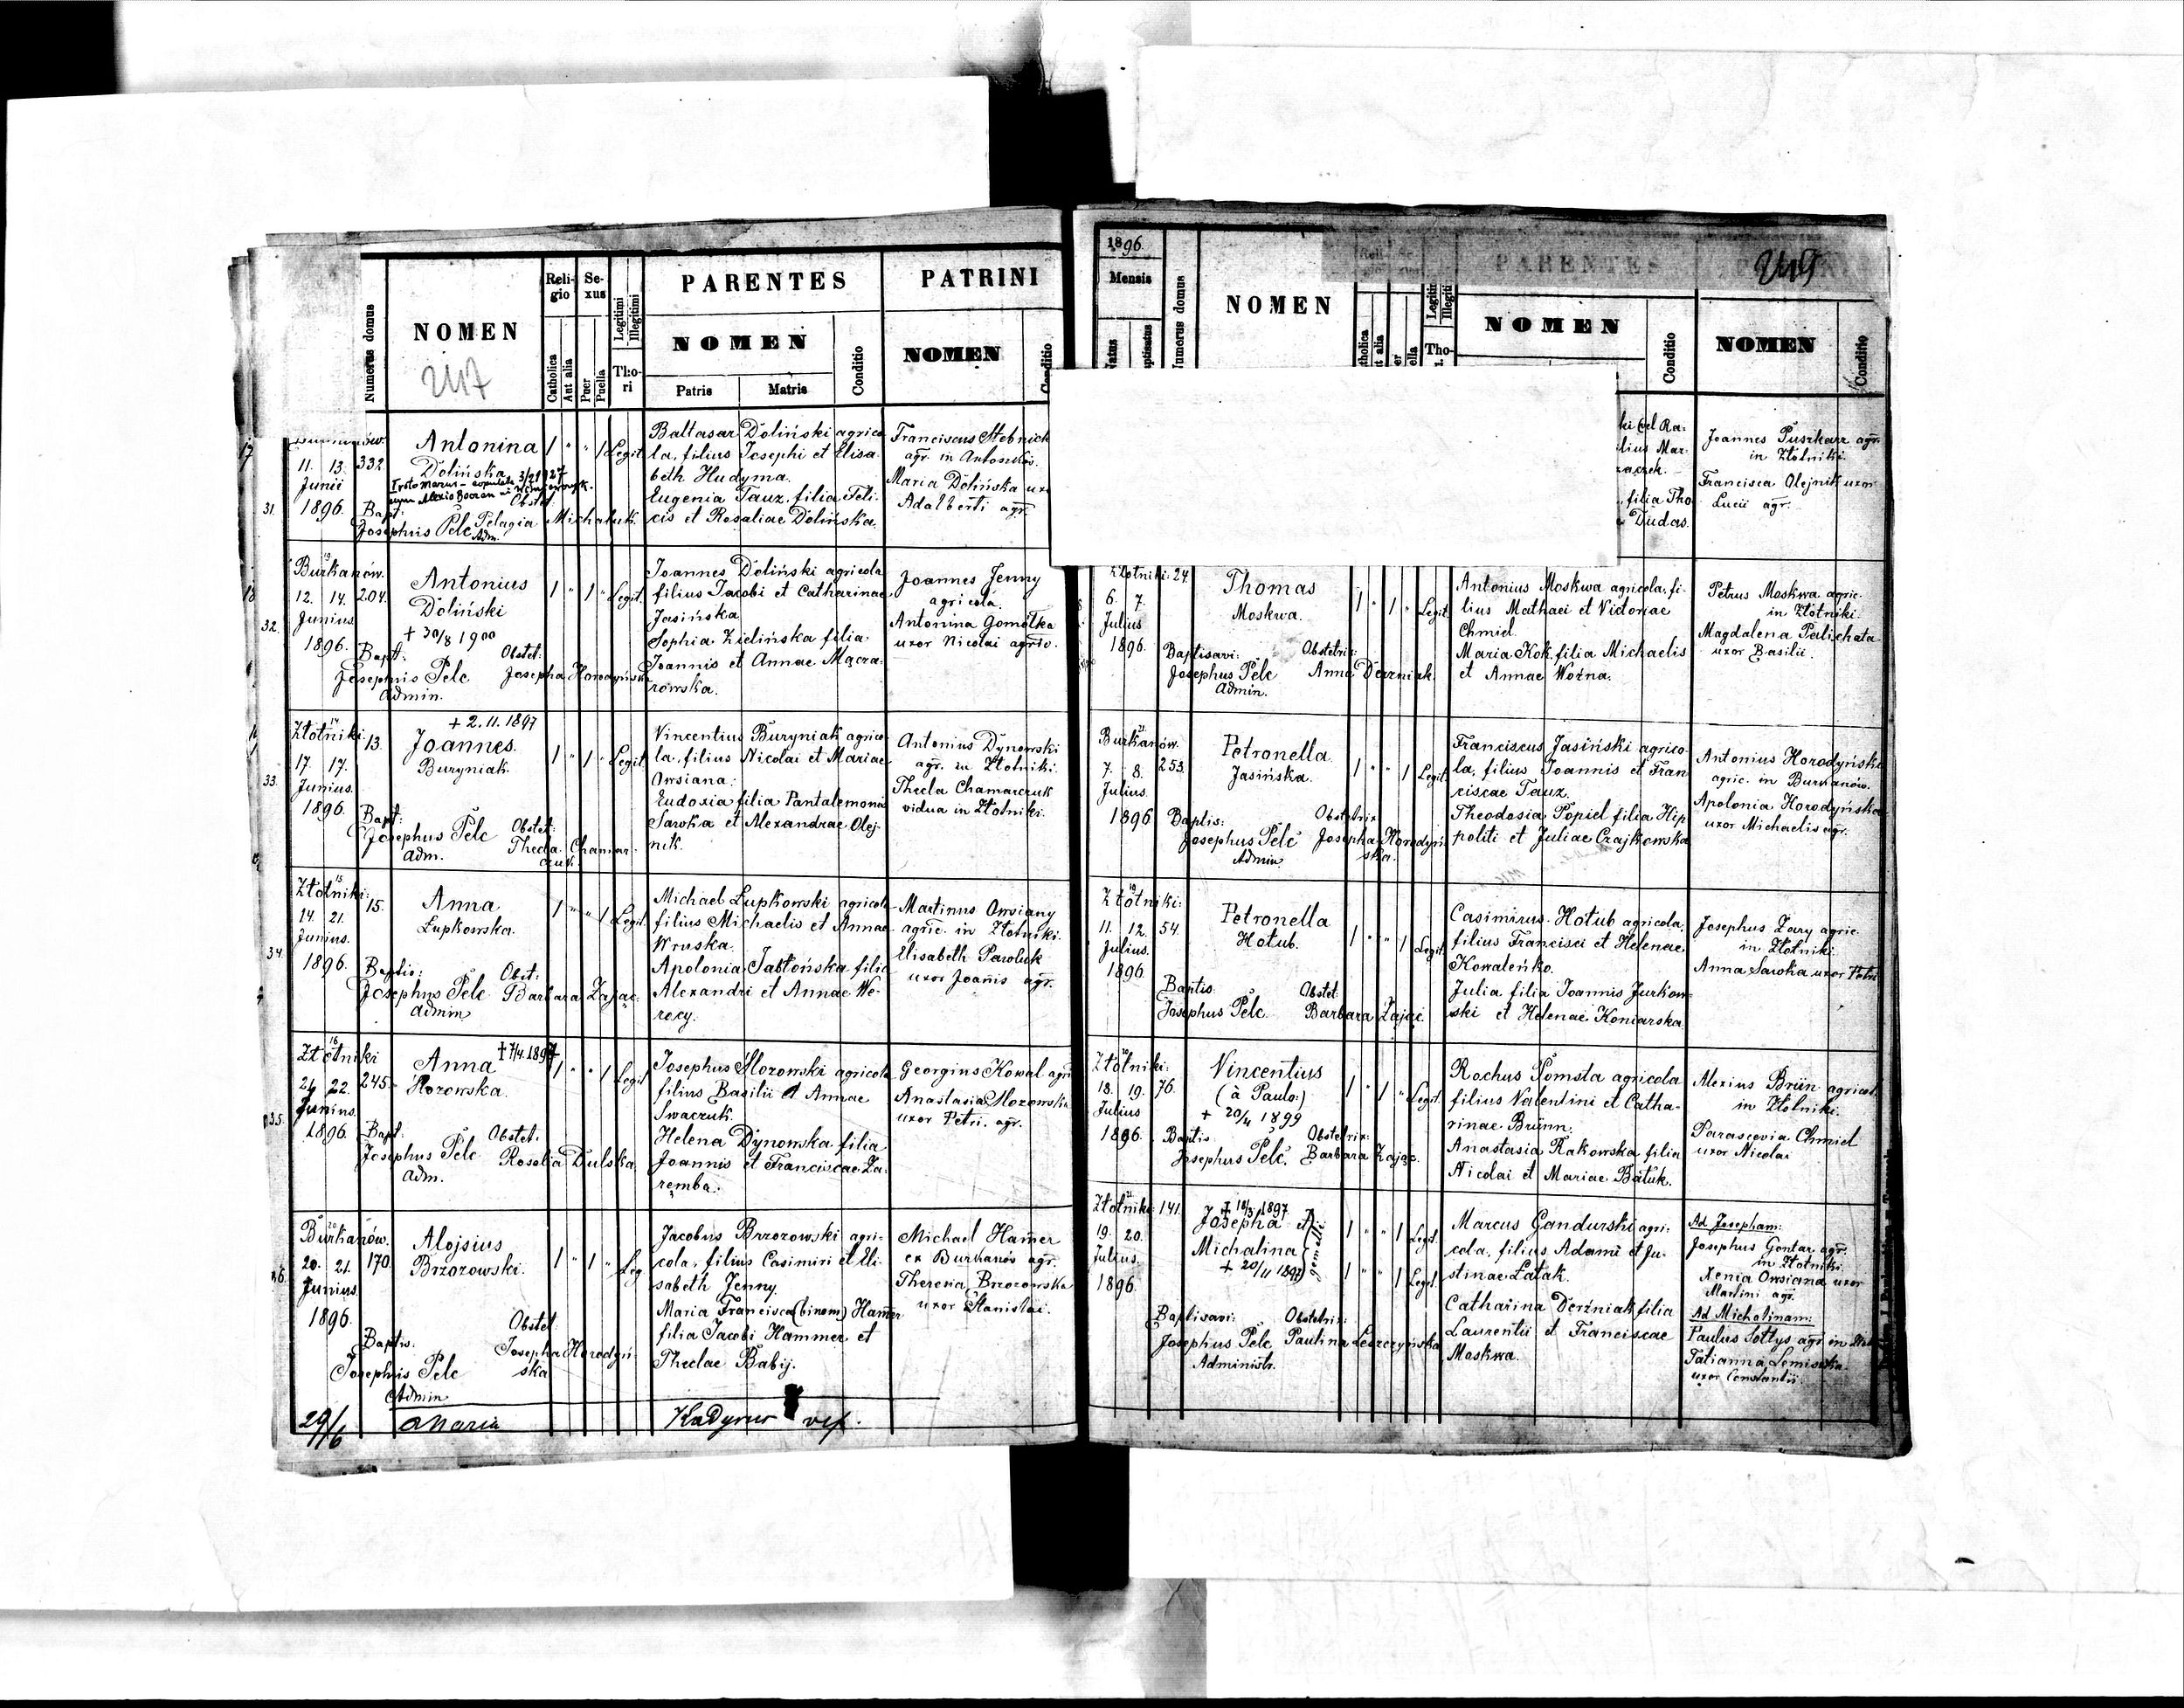 Numerus domus
NOMEN
247
Religio
Catholica
Aut alia
Sexus
Puer
Puella
Legitimi
Illegitimi
Thori
PARENTES
NOMEN
Patris
Matris
Conditio
PATRINI
NOMEN
Conditio
17
31.
11. 13. 332
Junii
1896.
Antonina
Dolińska
Obstet.
Bapt: Pelagia Michaluk.
Josephus Pelc
Adm.
1 " " 1 Legit.
Baltasar Doliński agrico
la, filius Josephi et Elisa
beth Hudyma.
Eugenia Tauz, filia Feli
cis et Rosaliae Dolińska.
Franciscus Stebnick
agr. in Antonków.
Maria Dolińska uxo
Adalberti agr.
18
32.
19
Burkanów.
12. 14. 204.
Junius
1896.
Antonius
Doliński
+ 30/8 1900
Bapt: Obstet:
Josephus Pelc Josepha Horodyńsk
Admin.
1 " 1 " Legit.
Joannes Doliński agricola
filius Jacobi et Catharinae
Jasińska
Sophia Zielińska filia
Joannis et Annae Mącza
rowska.
Joannes Jenny
agricola.
Antonina Gomółka
uxor Nicolai agric.
33.
14
Złotniki. 13.
17. 17.
Junius.
1896.
+ 2.11.1897
Joannes.
Buryniak
Bapt: Obstet:
Josephus Pelc Thecla Chamar
Adm. czuk.
1 " 1 " Legit.
Vincentius Buryniak agrico
la, filius Nicolai et Mariae
Owsiana.
Eudoxia filia Pantalemonis
Sawka et Alexandrae Olej-
nik.
Antonius Dynowski
agr. in Złotniki.
Thecla Chamarczuk
vidua in Złotniki.
34.
15
Złotniki: 15.
14. 21.
Junius.
1896.
Anna
Łupkowska.
Baptis: Obst:
Josephus Pelc Barbara Zając.
Admin
1 " " 1 Legit.
Michael Łupkowski agricola
filius Michaelis et Annae
Wruska.
Apolonia Jabłońska filia
Alexandri et Annae We-
recy.
Martinus Owsiany
agric. in Złotniki.
Elisabeth Pawluk
uxor Joannis agr.
35.
16
Złotniki
21 22. 245.
Junius.
1896.
+ 7/4.1897
Anna
Morowska.
Bapt: Obstet.
Josephus Pelc Rosalia Dulska.
Adm.
1 " " 1 Legit.
Josephus Morowski agricola
filius Basilii et Annae
Swaczuk.
Helena Dynowska filia
Joannis et Franciscae Za
remba.
Georgius Kowal agr
Anastasia Morowska
uxor Petri. agr.
36.
20
Burkanów.
20. 21. 170
Junius.
1896.
Alojsius
Brzozowski.
Obstet.
Baptis: Josepha Horodyń-
Josephus Pelc ska
Admin
1 " 1 " Leg
Jacobus Brzozowski agri-
cola, filius Casimiri et Eli
sabeth Jenny.
Maria Francisca (binom) Hamer
filia Jacobi Hammer et
Theclae Babij.
Michael Hamer
ex Burkanów agr.
Theresia Brzozowska
uxor Stanislai.
29/6 Maria
1896.
Mensis
Natus
Numerus domus
NOMEN
Tho-
PARENTES
NOMEN
Conditio
NOMEN
Conditio
ki vel Ra:
lius Mar
filia Tho
Dudas.
Joannes Puszkarz agr.
in Złotniki.
Francisca Olejnik uxor
Lucii agr.
Złotniki: 24
6. 7.
Julius
1896.
Thomas
Moskwa.
Baptisavi: Obstetrix:
Josephus Pelc Anna Derzniak.
Admin.
1 " 1 " Legit.
Antonius Moskwa agricola, fi-
lius Mathaei et Victoriae
Chmiel.
Maria Kok, filia Michaelis
et Annae Woźna.
Petrus Moskwa agric.
in Złotniki.
Magdalena Palichata
uxor Basilii.
21
Burkanów.
7. 8. 253.
Julius.
1896
Petronella
Jasińska.
Baptis: Obstetrix
Josephus Pelc Josepha Horodyń
Admin ska.
1 " " 1 Legit.
Franciscus Jasiński agrico-
la, filius Joannis et Fran
ciscae Tauz.
Theodosia Popiel filia Hip
politi et Juliae Czajkowska
Antonius Horodyński
agric. in Burkanów.
Apolonia Horodyńska
uxor Michaelis agr.
19
Złotniki:
11. 12. 54.
Julius.
1896.
Petronella
Hołub.
Baptis Obstet
Josephus Pelc. Barbara Zając.
1 " " 1 Legit.
Casimirus Hołub agricola,
filius Francisci et Helenae
Kowaleńko.
Julia filia Joannis Jurkow-
ski et Helenae Koniarska.
Josephus Zary agric.
in Złotniki.
Anna Sawka uxor Petri
20
Złotniki:
18. 19. 76.
Julius
1896.
Vincentius
(à Paulo:)
+ 20/4 1899
Baptis Obstetrix:
Josephus Pelc. Barbara Zając.
1 " 1 " Legit.
Rochus Pomsta agricola
filius Valentini et Catha-
rinae Brünn.
Anastasia Rakowska filia
Nicolai et Mariae Batuk.
Alexius Brün agricol.
in Złotniki.
Parascevia Chmiel
uxor Nicolai
21
Złotniki: 141.
19. 20.
Julius.
1896.
+ 18/3 1897
Josepha et
Michalina
gemelli
+ 20/11 1897
Baptisavi: Obstetrix:
Josephus Pelc Paulina Leszczyńska
Administr.
1 " " 1 Legit.
1 " " 1 Legit.
Marcus Gandurski agri-
cola, filius Adami et Ju-
stinae Łatak.
Catharina Derźniak filia
Laurentii et Franciscae
Moskwa.
Ad Josepham:
Josephus Gontar agr.
in Złotniki.
Xenia Owsiana uxor
Martini agr.
Ad Michalinam:
Paulus Sołtys agr. in
Tatianna
uxor Constantii.